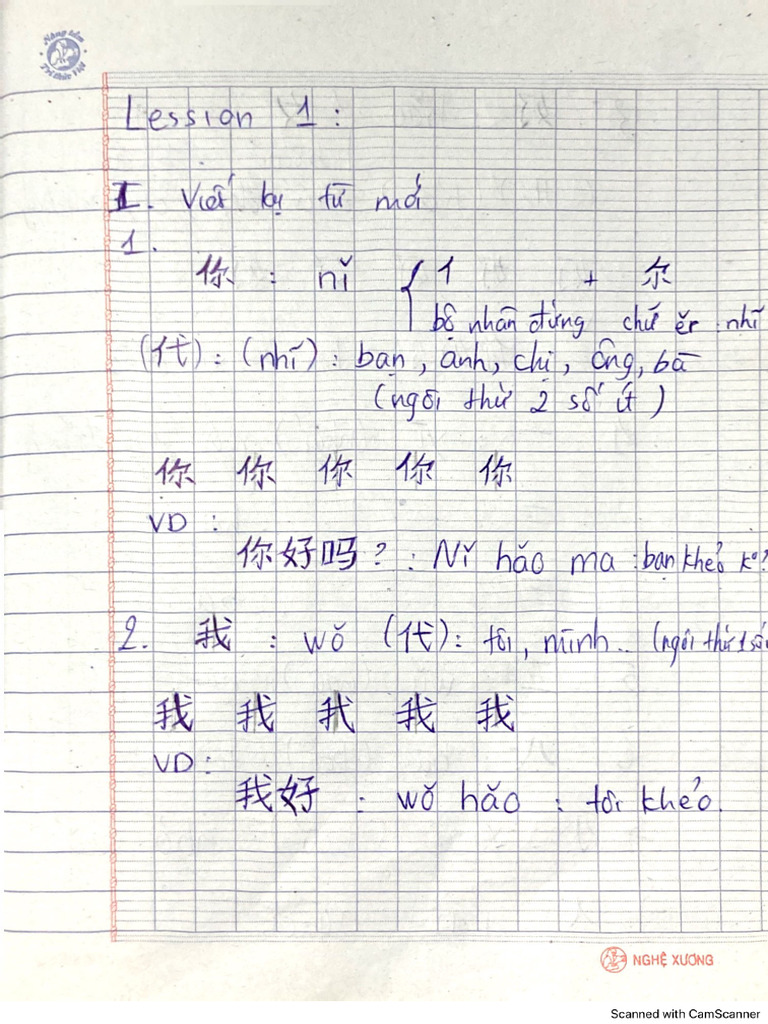 Nâng tầm
Tri thức Việt
Lession 1 :
I. Viết lại từ mới
1.
你 : nǐ { 亻 + 尔
bộ nhân đứng chữ ěr : nhĩ
(代) : (nhĩ) : bạn, anh, chị, ông, bà
(ngôi thứ 2 số ít)
你 你 你 你 你
VD :
你好吗? : Nǐ hǎo ma : bạn khẻo ko?
2. 我 : wǒ (代) : tôi, mình... (ngôi thứ 1 số
我 我 我 我 我
VD :
我好 : wǒ hǎo : tôi khẻo.
NGHỆ XƯƠNG
Scanned with CamScanner